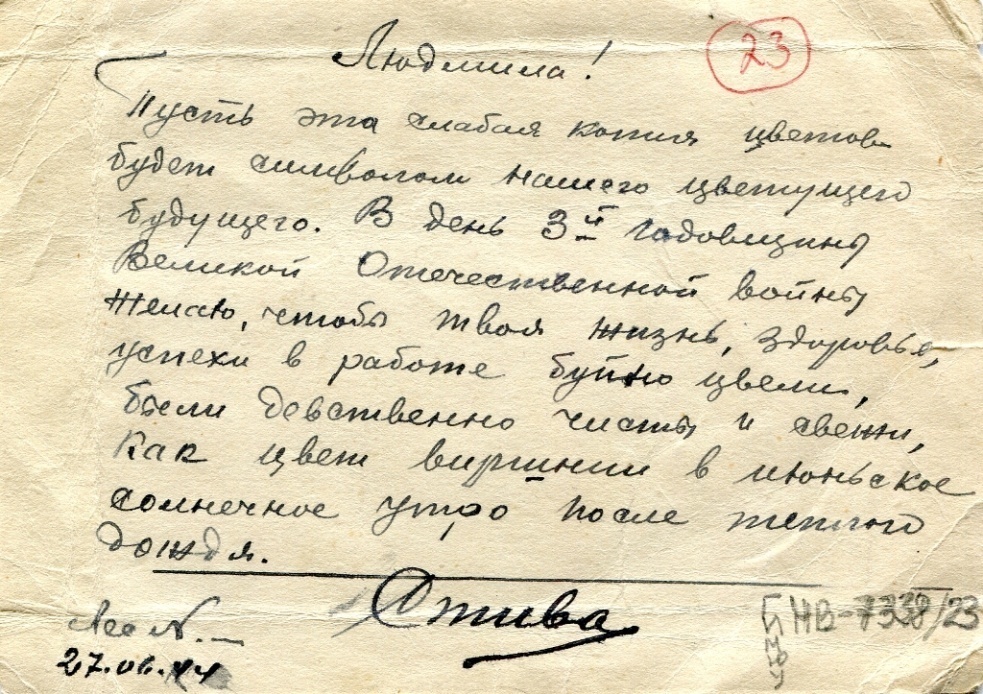 Людмила!
23
Пусть эта слабая копия цветов
будет символом нашего цветущего
будущего. В день 3й годовщины
Великой Отечественной войны
желаю, чтобы твоя жизнь, здоровье,
успехи в работе буйно цвели,
были девственно чисты и свежи,
как цвет виргинии в июньское
солнечное утро после теплого
дождя.
Стива
Лес N.
27.06.44
НВ-7338/23